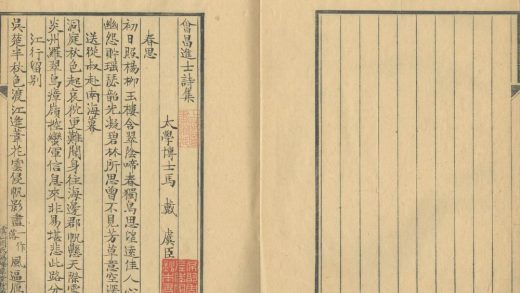 會昌進士詩集
太學博士馬戴虞臣
春思
初日照楊柳玉樓含翠陰啼春獨鳥思望遠佳人心
幽怨貯瑤瑟韶光凝碧林所思曾不見芳草意空深
送從叔赴南海幕
洞庭秋色起哀狖更難聞身往海邊郡帆懸天際雲
炎州羅翠鳥瘴嶺控蠻軍信息來非易堪悲此路分
江行留別
吳楚半秋色渡江逢葦花雲侵帆影盡落作風逼雁